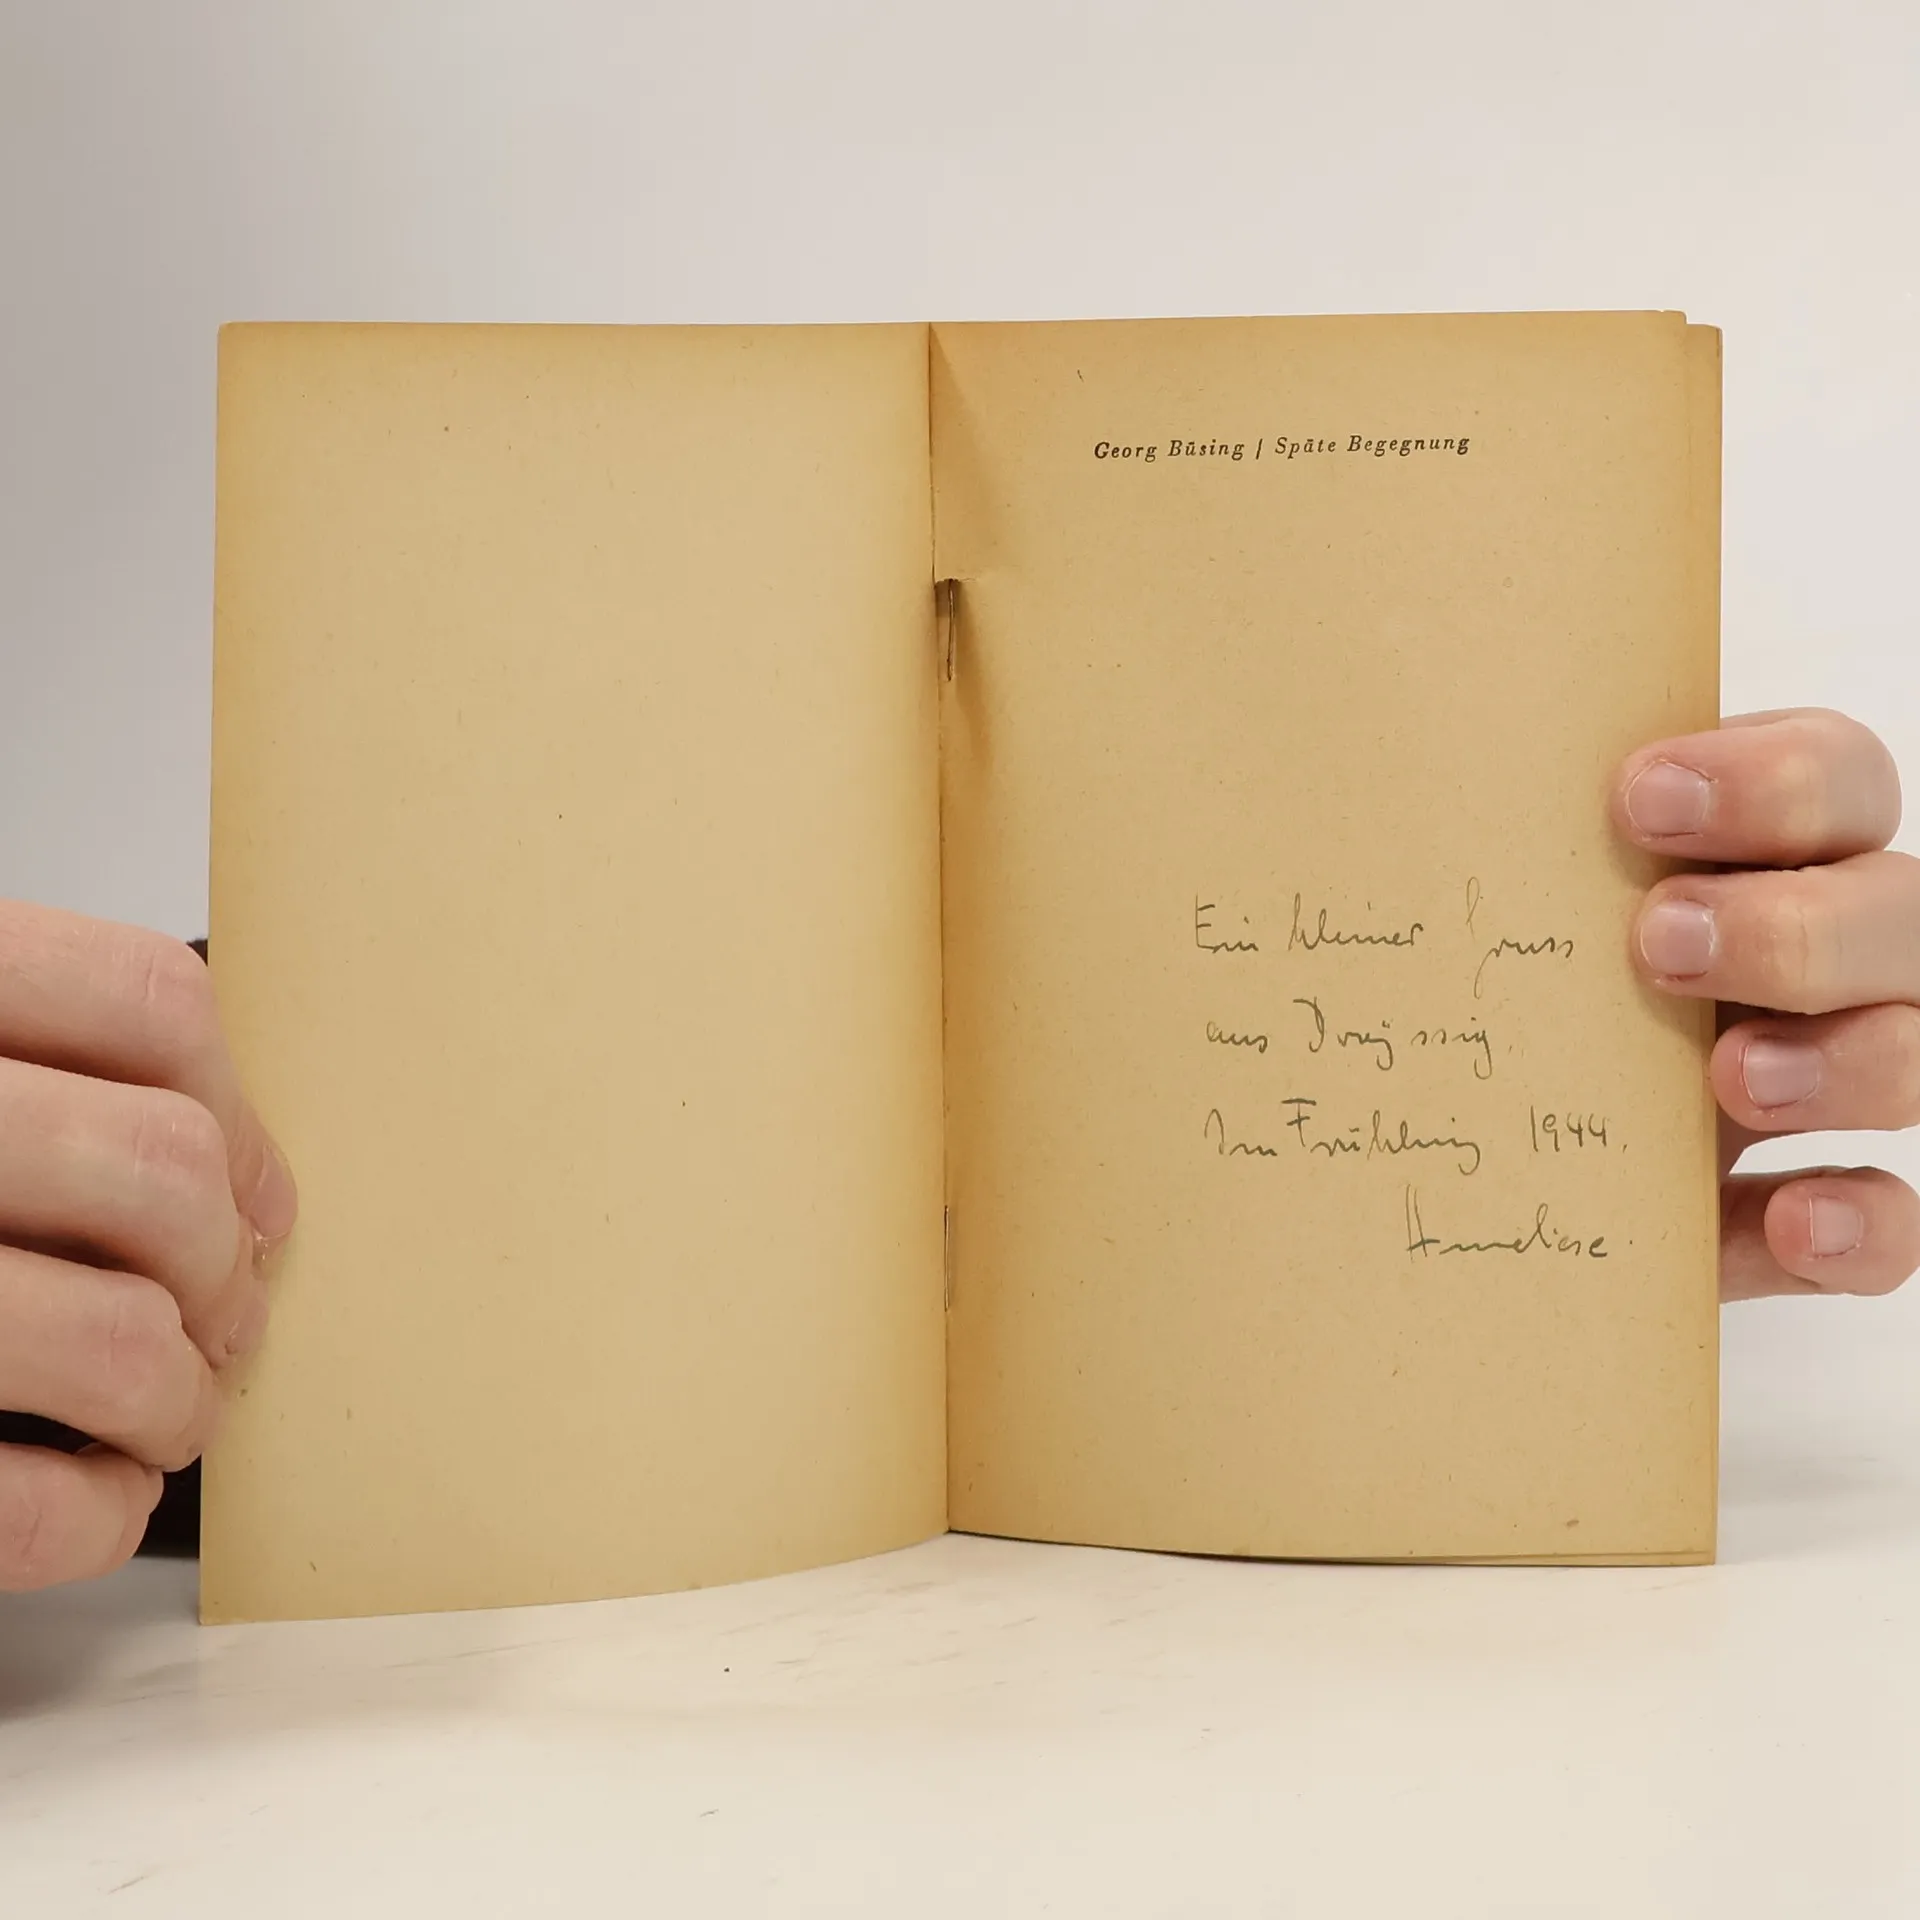 Georg Büsing / Späte Begegnung
Ein kleiner Gruss
aus Droÿssig.
Im Frühling 1944.
Anneliese.